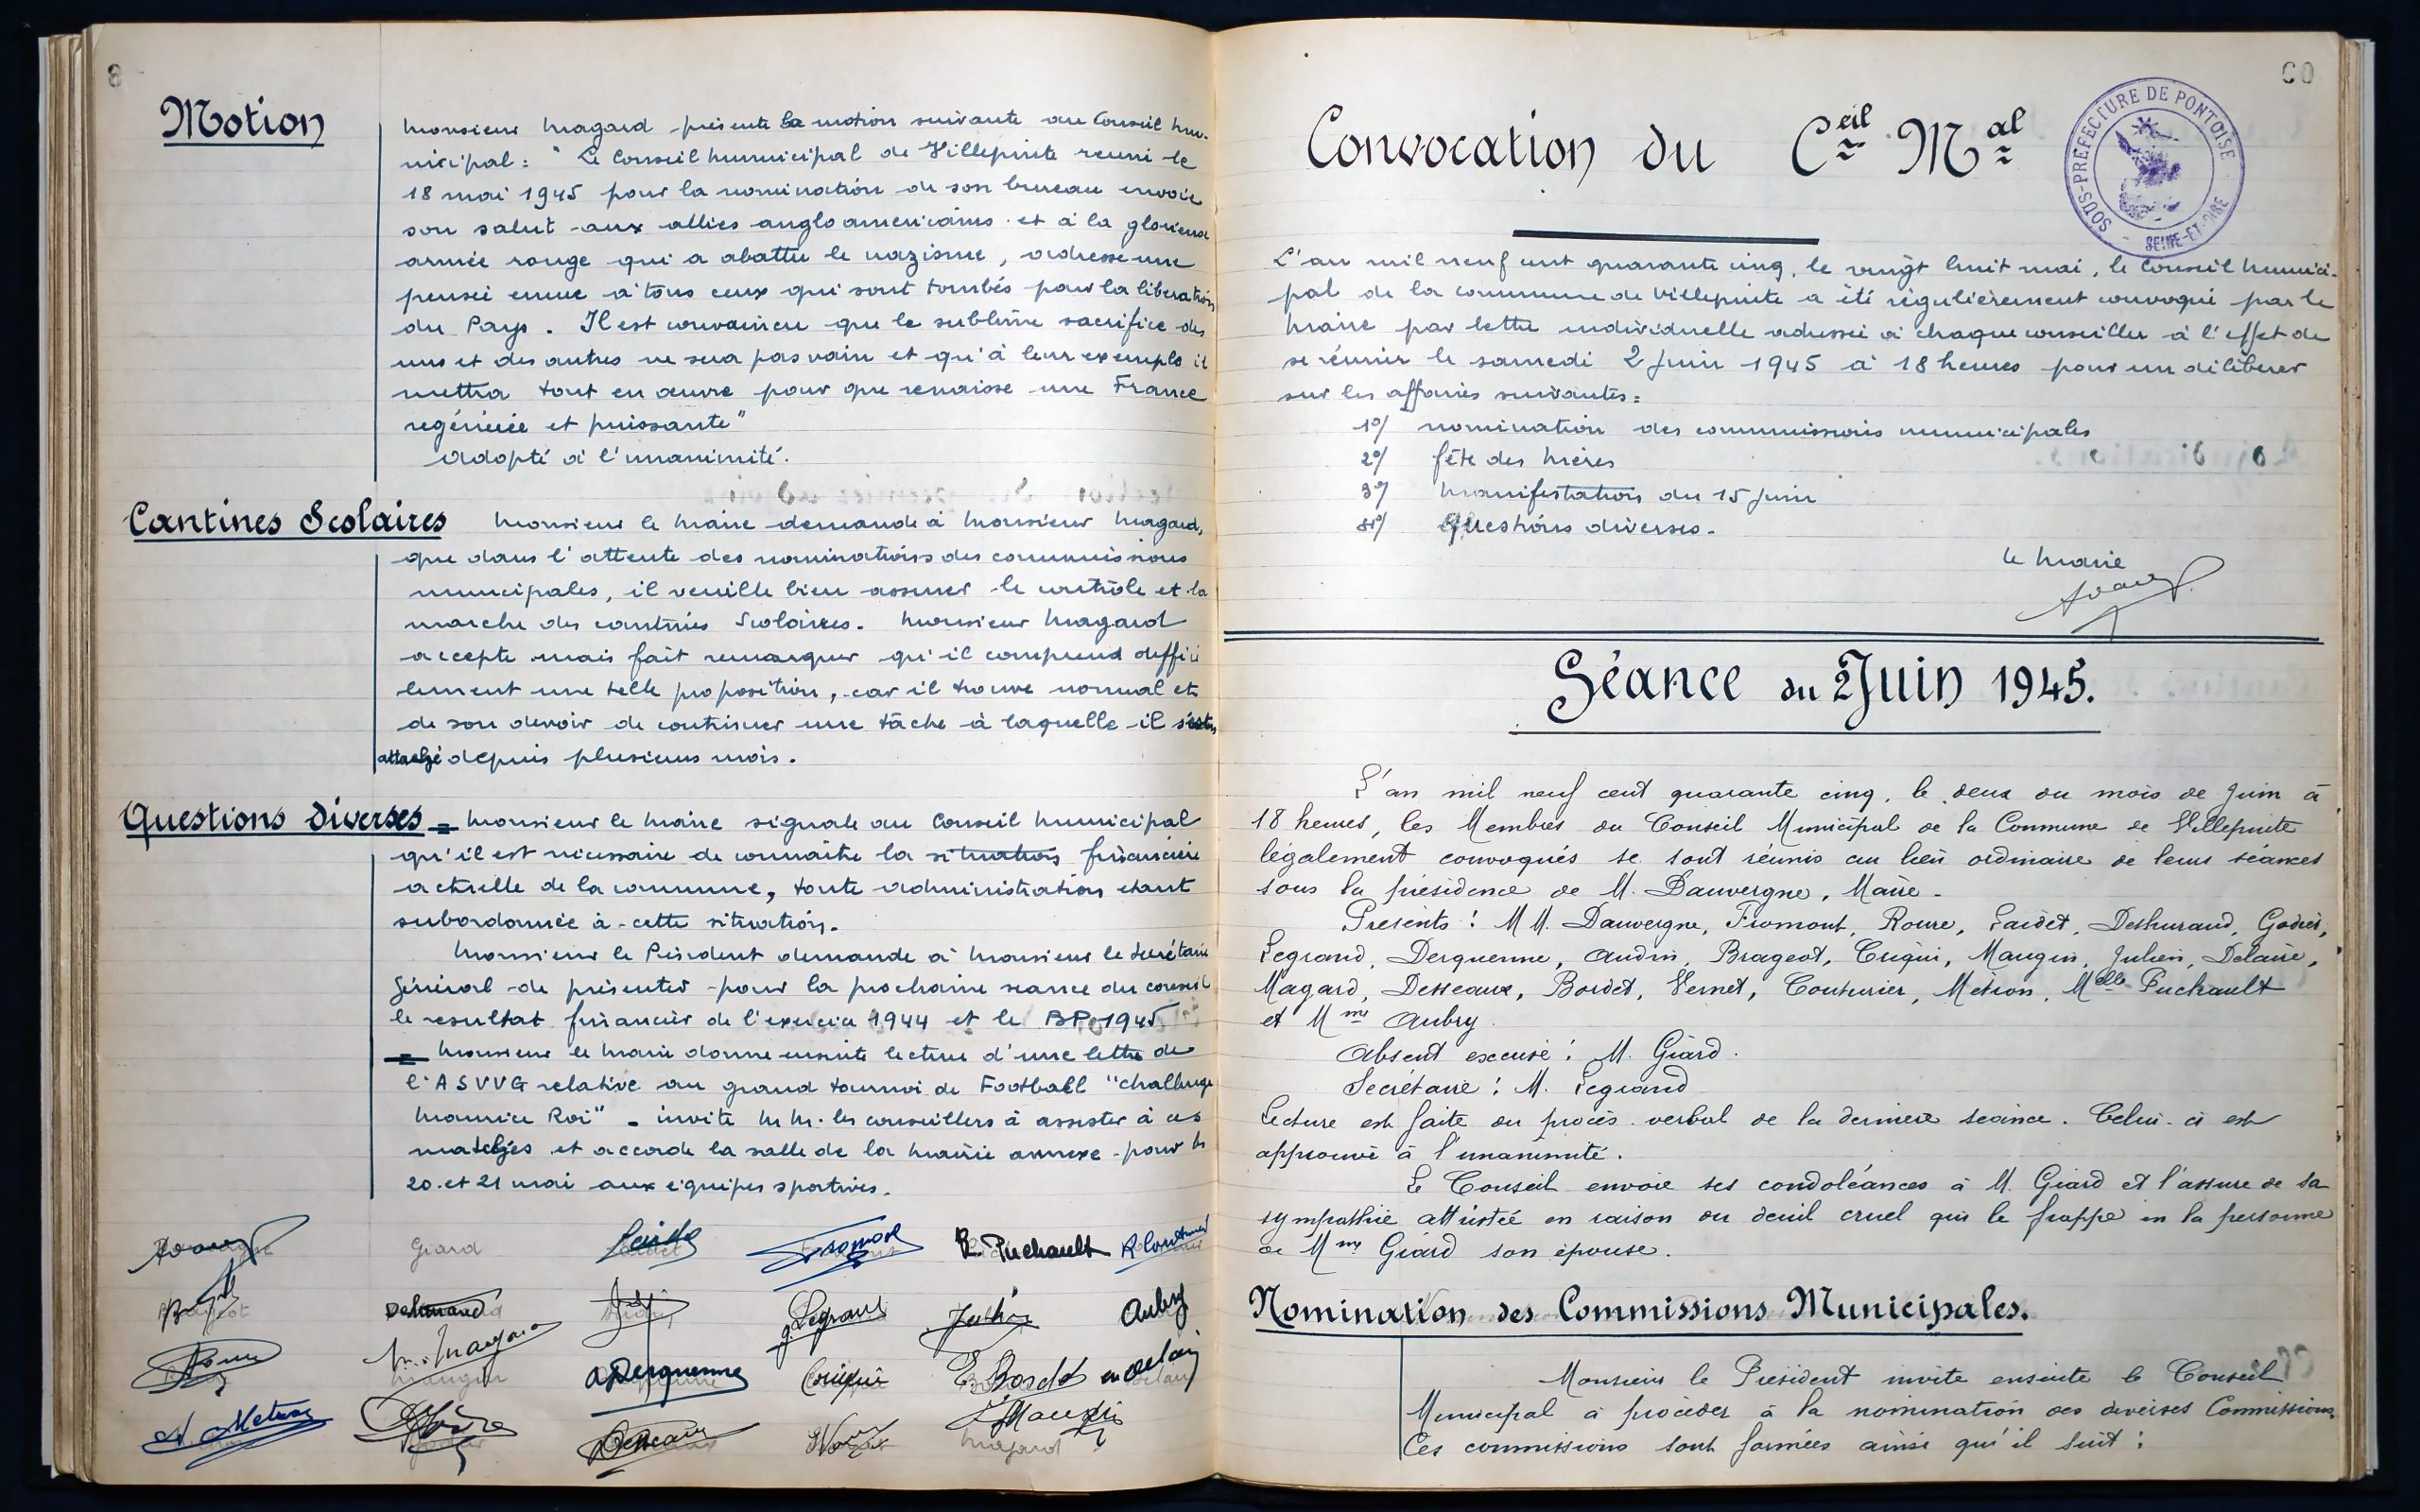 8
Motion
Monsieur Magard présente la motion suivante au Conseil Mu-
nicipal : " Le Conseil Municipal de Villepinte reuni le
18 mai 1945 pour la nomination de son bureau envoie
son salut aux alliés anglo americains et à la glorieuse
armée rouge qui a abattu le nazisme, adresse une
pensée emue à tous ceux qui sont tombés pour la libération
du Pays. Il est convaincu que le sublime sacrifice des
uns et des autres ne sera pas vain et qu'à leur exemple il
mettra tout en œuvre pour que renaisse une France
regénérée et puissante"
adopté à l'unanimité.
Cantines Scolaires Monsieur le Maire demande à Monsieur Magard,
que dans l'attente des nominations des commissions
municipales, il veuille bien assurer le contrôle et la
marche des cantines Scolaires. Monsieur Magard
accepte mais fait remarquer qu'il comprend diffici
lement une telle proposition, car il trouve normal et
de son devoir de continuer une tâche à laquelle il s'est
attaché depuis plusieurs mois.
Questions diverses = Monsieur le Maire signale au Conseil Municipal
qu'il est nécessaire de connaître la situation financière
actuelle de la commune, toute administration etant
subordonnée à cette situation.
Monsieur le Président demande à Monsieur le Secrétaire
Général de présenter pour la prochaine seance du conseil
le resultat financier de l'exercice 1944 et le BP 1945
= Monsieur le Maire donne ensuite lecture d'une lettre de
l'ASVVG relative au grand tournoi de Football "challenge
Maurice Roi" - invite MM. les conseillers à assister à ces
matches et accorde la salle de la Mairie annexe pour les
20 et 21 mai aux équipes sportives.
Giard R. Puchault
Legrand Julien Aubry
M. Magard
Mangin A Derquenne Criqui E. Bordet
A. Metron Desseaux Magard
Convocation du Ceil Mal
SOUS-PRÉFECTURE DE PONTOISE
SEINE-ET-OISE
L'an mil neuf cent quarante cinq, le vingt huit mai, le Conseil Munici-
pal de la commune de Villepinte a été régulièrement convoqué par le
Maire par lettre individuelle adressée à chaque conseiller à l'effet de
se réunir le samedi 2 juin 1945 à 18 heures pour un délibérer
sur les affaires suivantes :
1°/ nomination des commissions municipales
2°/ fête des Mères
3°/ Manifestation du 15 juin
4°/ Questions diverses.
le Maire
Séance du 2 Juin 1945.
L'an mil neuf cent quarante cinq, le deux du mois de Juin à
18 heures, les Membres du Conseil Municipal de la Commune de Villepinte
légalement convoqués se sont réunis au lieu ordinaire de leurs séances
sous la présidence de M. Dauvergne, Maire.
Présents : MM. Dauvergne, Fromont, Roure, Laidet, Deshuraud, Godier,
Legrand, Derquenne, Audin, Brageot, Criqui, Mangin, Julien, Delaire,
Magard, Desseaux, Bordet, Vernet, Couturier, Métron, Melle Puchault
et Mme Aubry.
Absent excusé : M. Giard.
Secrétaire : M. Legrand
Lecture est faite du procès-verbal de la dernière séance. Celui-ci est
approuvé à l'unanimité.
Le Conseil envoie ses condoléances à M. Giard et l'assure de sa
sympathie attristée en raison du deuil cruel qui le frappe en la personne
de Mme Giard son épouse.
Nomination des Commissions Municipales.
Monsieur le Président invite ensuite le Conseil
Municipal à procéder à la nomination des diverses Commissions.
Ces commissions sont formées ainsi qu'il suit :